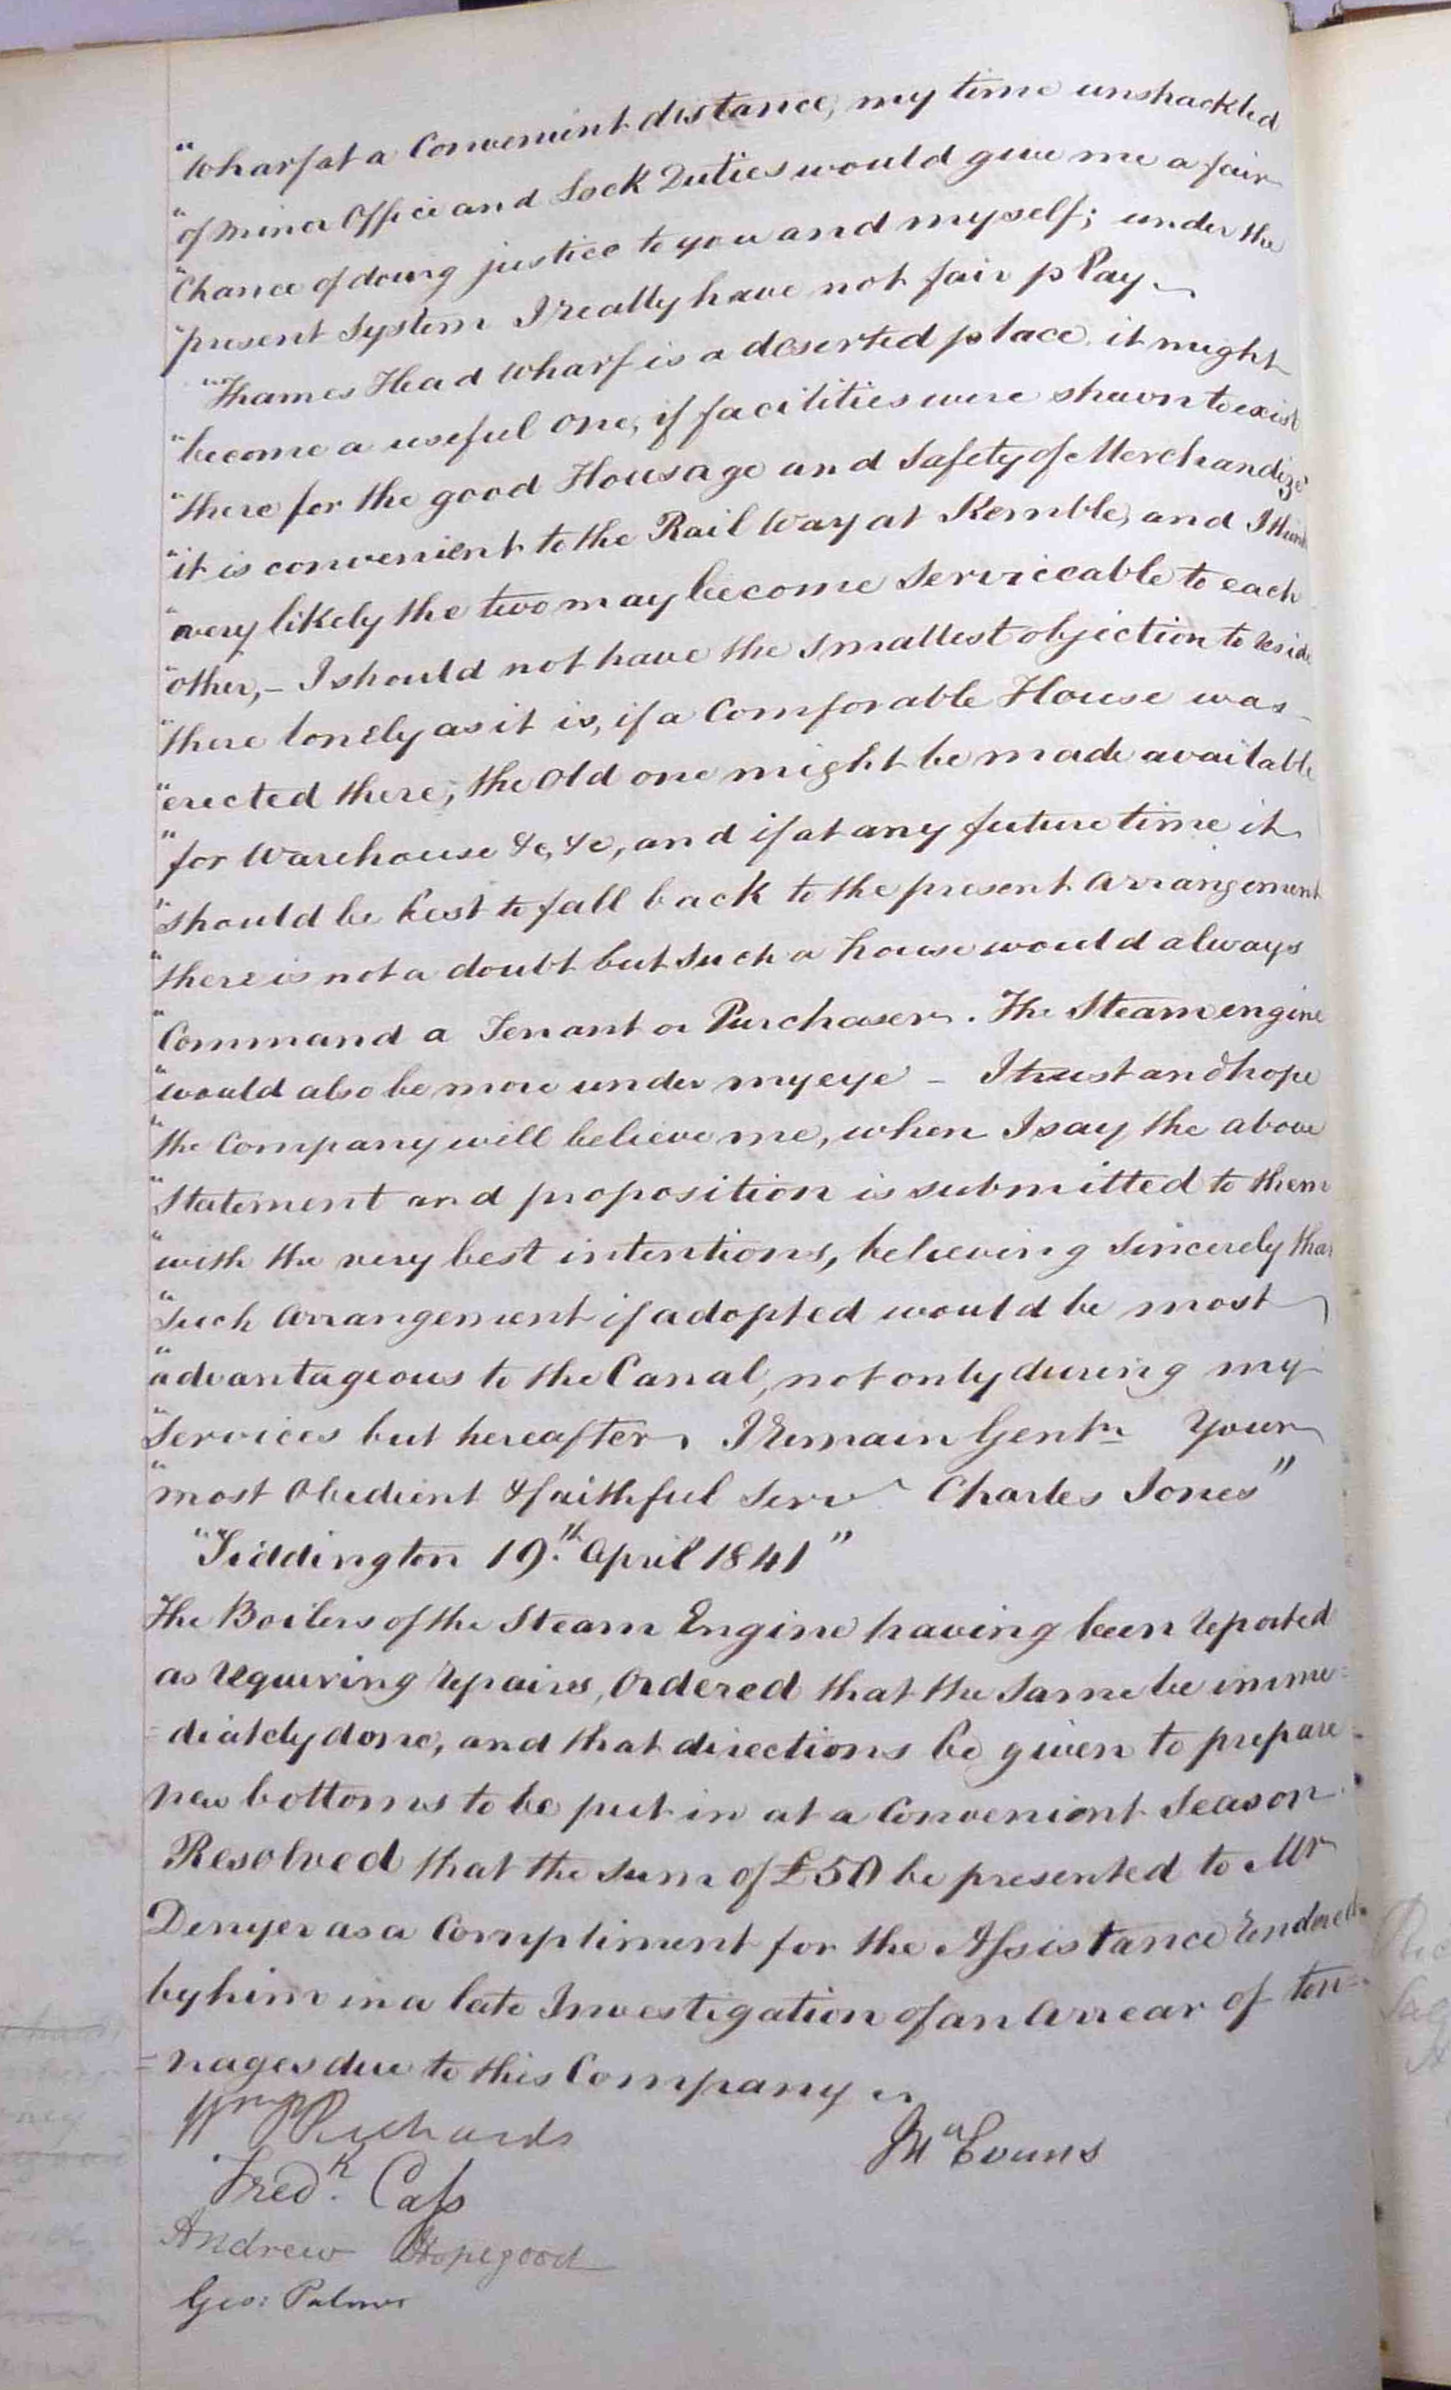 "Wharf at a Convenient distance, my time unshackled
"of minor Office and Lock Duties would give me a fair
"Chance of doing justice to you and myself; under the
"present System I really have not fair play
"Thames Head Wharf is a deserted place, it might
"become a useful one, if facilities were shewn to exist
"there for the good Housage and Safety of Merchandize
"it is convenient to the Rail Way at Kemble, and I think
"very likely the two may become Serviceable to each
"other,- I should not have the Smallest objection to reside
"there lonely as it is, if a Comforable House was
"erected there; the Old one might be made available
"for Warehouse &c, &c, and if at any future time it
"should be best to fall back to the present Arrangement
"there is not a doubt but Such a house would always
"Command a Tenant or Purchaser. The Steam engine
"would also be more under my eye - I trust and hope
"the Company will believe me, when I say, the above
"Statement and proposition is submitted to them
"with the very best intentions, believing Sincerely that
"Such Arrangement if adopted would be most
"advantageous to the Canal, not only during my
"Services but hereafter, I Remain Gentn Your
"most Obedient & faithful Servt Charles Jones"
"Siddington 19th April 1841"
The Boilers of the Steam Engine having been reported
as requiring repairs, Ordered that the Same be imme=
=diately done, and that directions be given to prepare
new bottoms to be put in at a Convenient Season.
Resolved that the Sum of £50 be presented to Mr
Denyer as a Compliment for the Assistance rendered
by him in a late Investigation of an Arrear of ton=
=nages due to this Company
Wm P Richards
Wm Evans
Fredk. Cass
Andrew Hopegood
Geo: Palmer